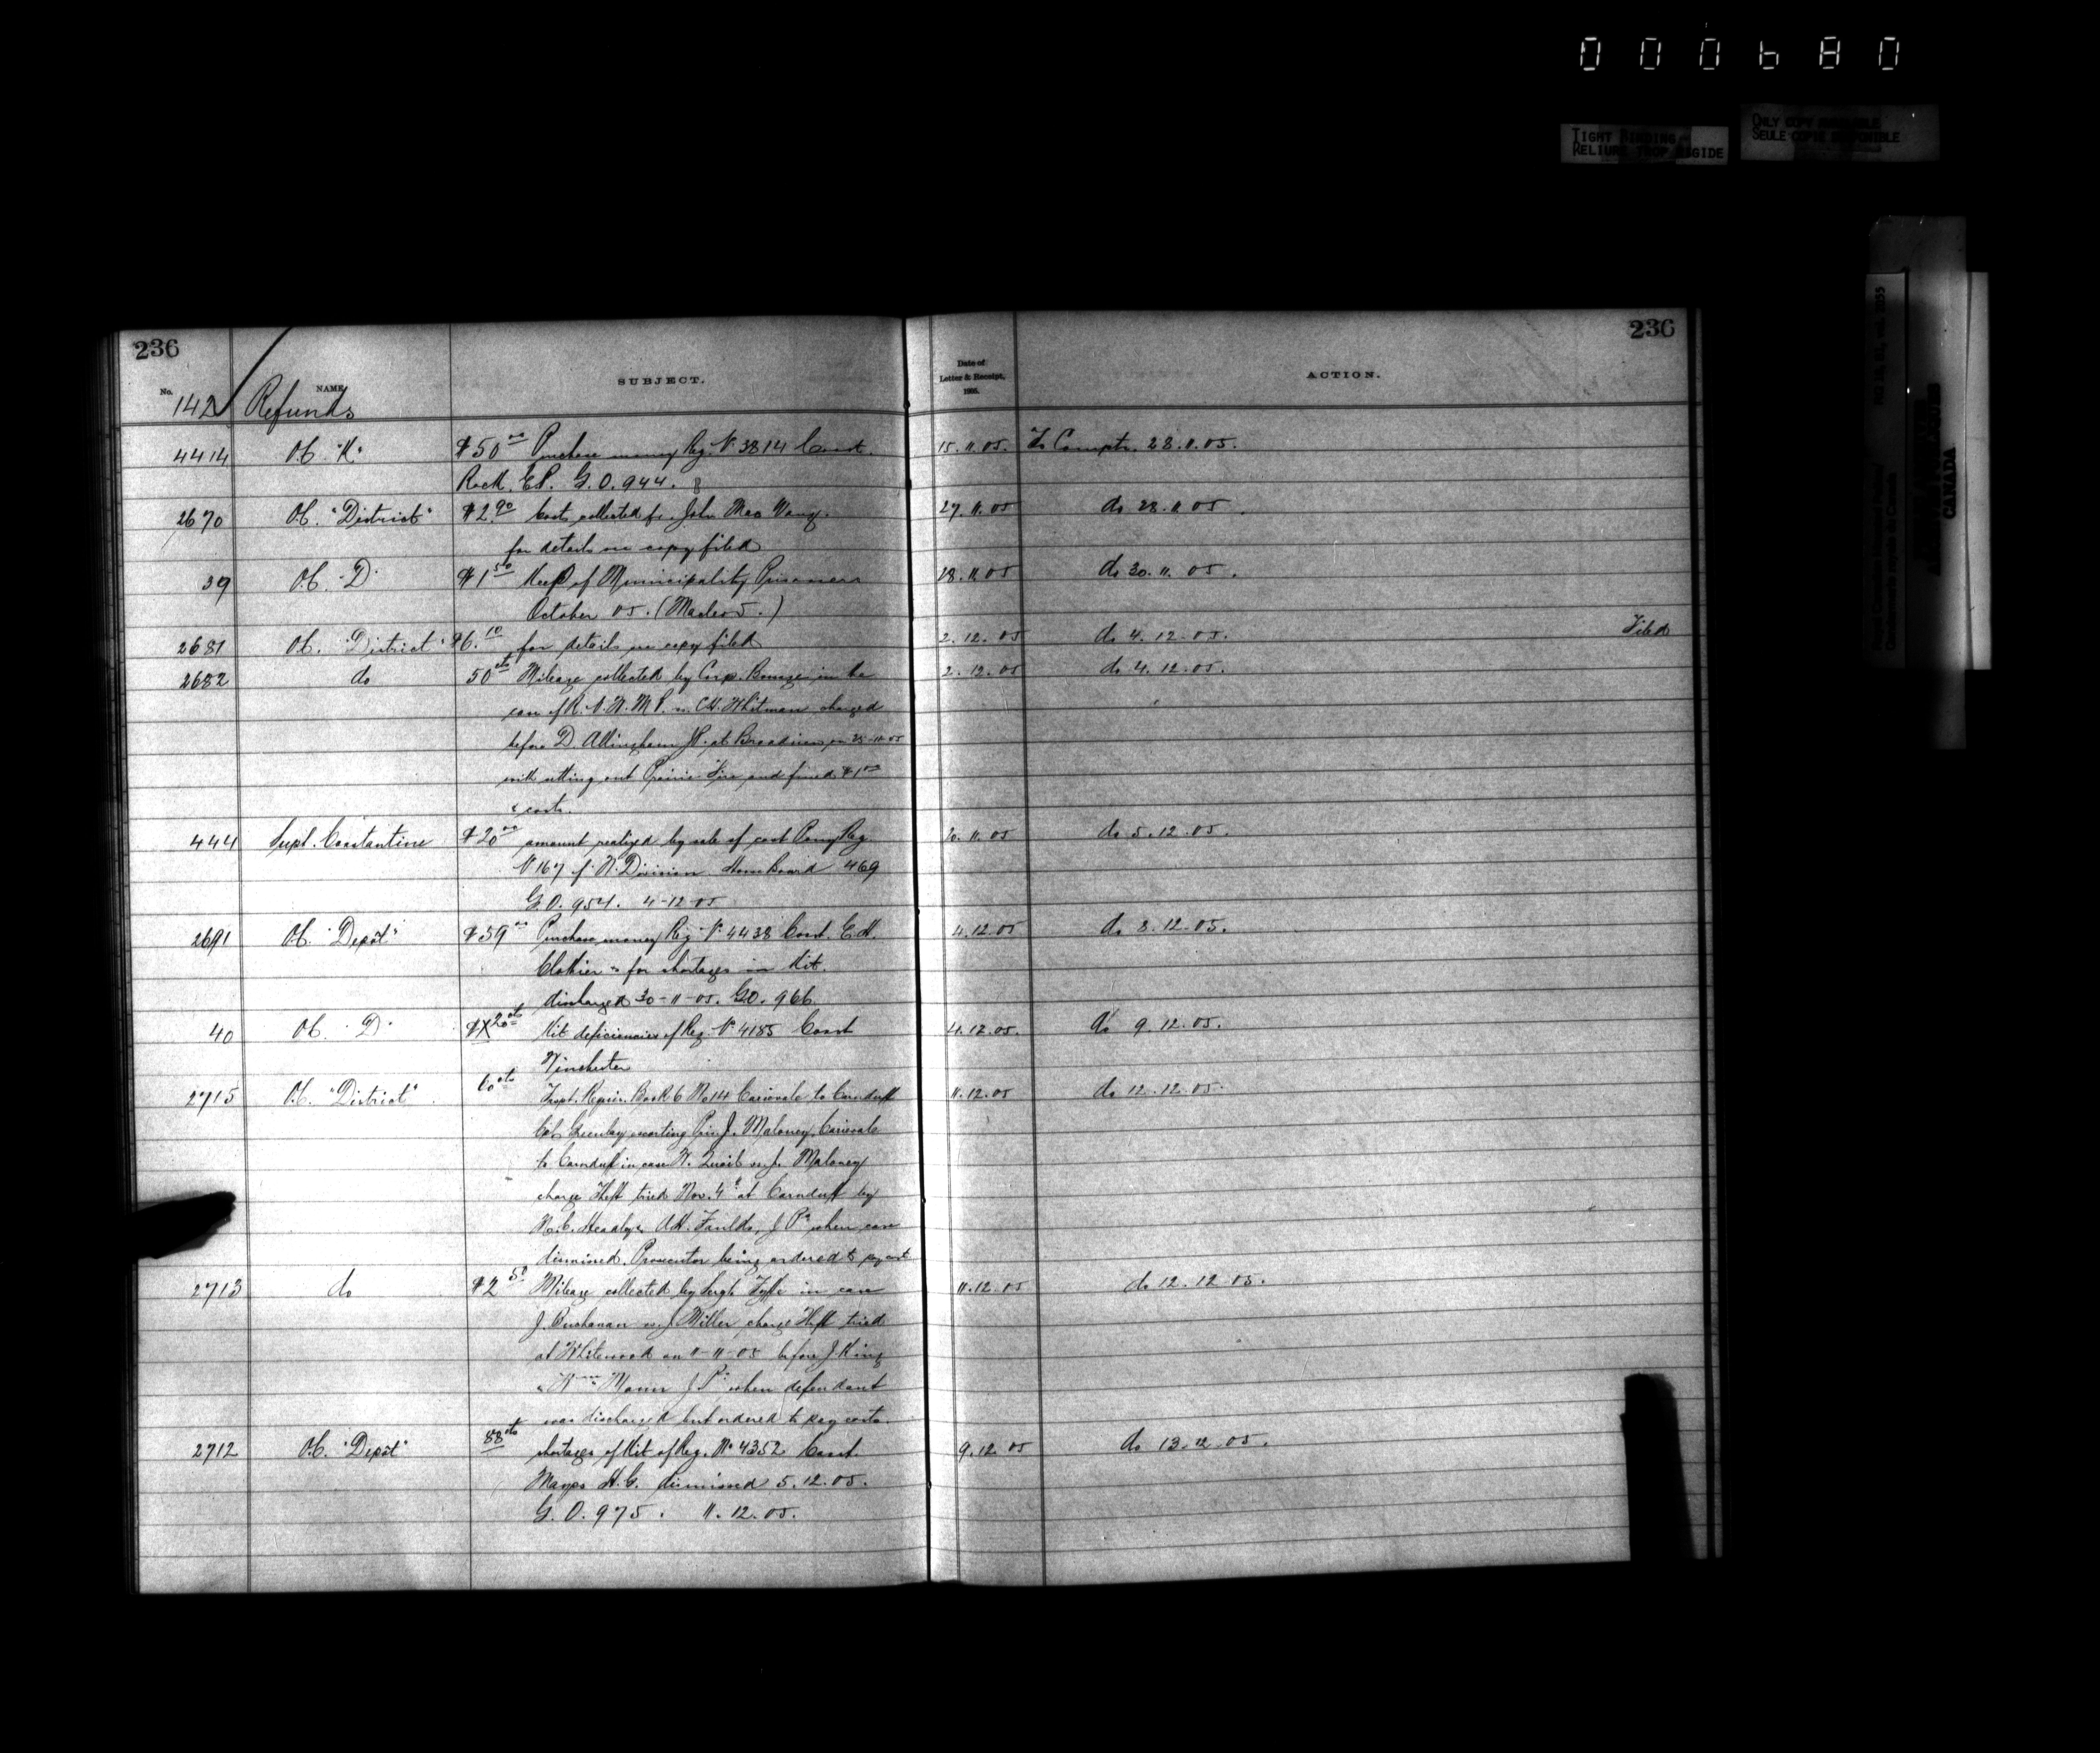 000680
TIGHT BINDING
RELIURE TROP RIGIDE
ONLY COPY AVAILABLE
SEULE COPIE DISPONIBLE
CANADA
236 236
No. NAME SUBJECT. Date of Letter & Receipt, 1905. ACTION.
142 Refunds
4414 O.C. "K" $50 00 Purchase money Reg. No 3814 Const. 15.11.05. To Comptr. 28.11.05.
Rock, E.P. G.O. 944.
2670 O.C. "District" $2.90 Costs collected fr. John Mac 27.11.05 do 28.11.05.
for details see copy filed
39 O.C. "D" $1 50 Keep of Municipality Prisoners 28.11.05 do 30.11.05.
October 05. (Macleod.)
2681 O.C. "District" $6.10 for details see copy filed 2.12.05 do 4.12.05. Filed
2682 do 50 cts Mileage collected by Corp. in the 2.12.05 do 4.12.05.
case of R.N.W.M.P. vs. C.H. Whitman charged
before D. Allingham J.P. at on 25-11-05
with setting out Prairie Fire and fined $1 00
& costs.
444 Supt. Constantine $20 00 amount realized by sale of cast Pony Reg. 20.11.05 do 5.12.05.
No 167 of N. Division Horse Board 469
G.O. 954. 4-12-05
2691 O.C. "Depôt" $59 00 Purchase money Reg. No 4438 Const. E.H. 4.12.05 do 8.12.05.
Clothier & for shortages in Kit.
discharged 30-11-05. G.O. 966.
40 O.C. "D" 20 cts Kit deficiencies of Reg. No 4185 Const 4.12.05. do 9.12.05.
Winchester
2715 O.C. "District" 60 cts Tspt. Requis. Book 6 No 14 Carievale to Carnduff 11.12.05 do 12.12.05.
escorting Pris. J. Maloney, Carievale
to Carnduff in case W. vs. J. Maloney
charge Theft tried Nov. 4th at Carnduff by
A.H. Faulds, J.Ps when case
dismissed. Prosecutor being ordered to pay costs
2713 do $2 50 Mileage collected by Sergt Fyffe in case 11.12.05 do 12.12.05.
J. Buchanan vs. J Miller charge Theft tried
at Whitewood on 11-11-05 before J. King
& Wm Mann J.Ps when defendant
was discharged but ordered to pay costs.
2712 O.C. "Depôt" 88 cts shortages of Kit of Reg. No 4352 Const. 9.12.05 do 13.12.05.
Mayes H.G. dismissed 5.12.05.
G.O. 975. 11.12.05.